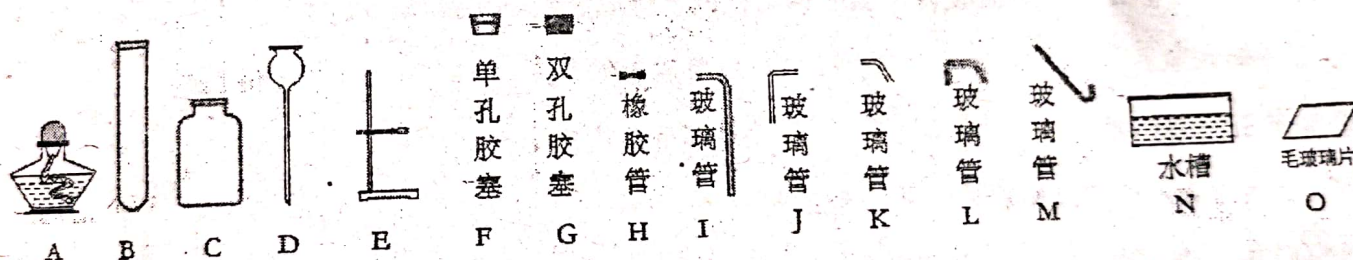 单孔胶塞
双孔胶塞
橡胶管
玻璃管
玻璃管
玻璃管
玻璃管
玻璃管
水槽
毛玻璃片
A B C D E F G H I J K L M N O